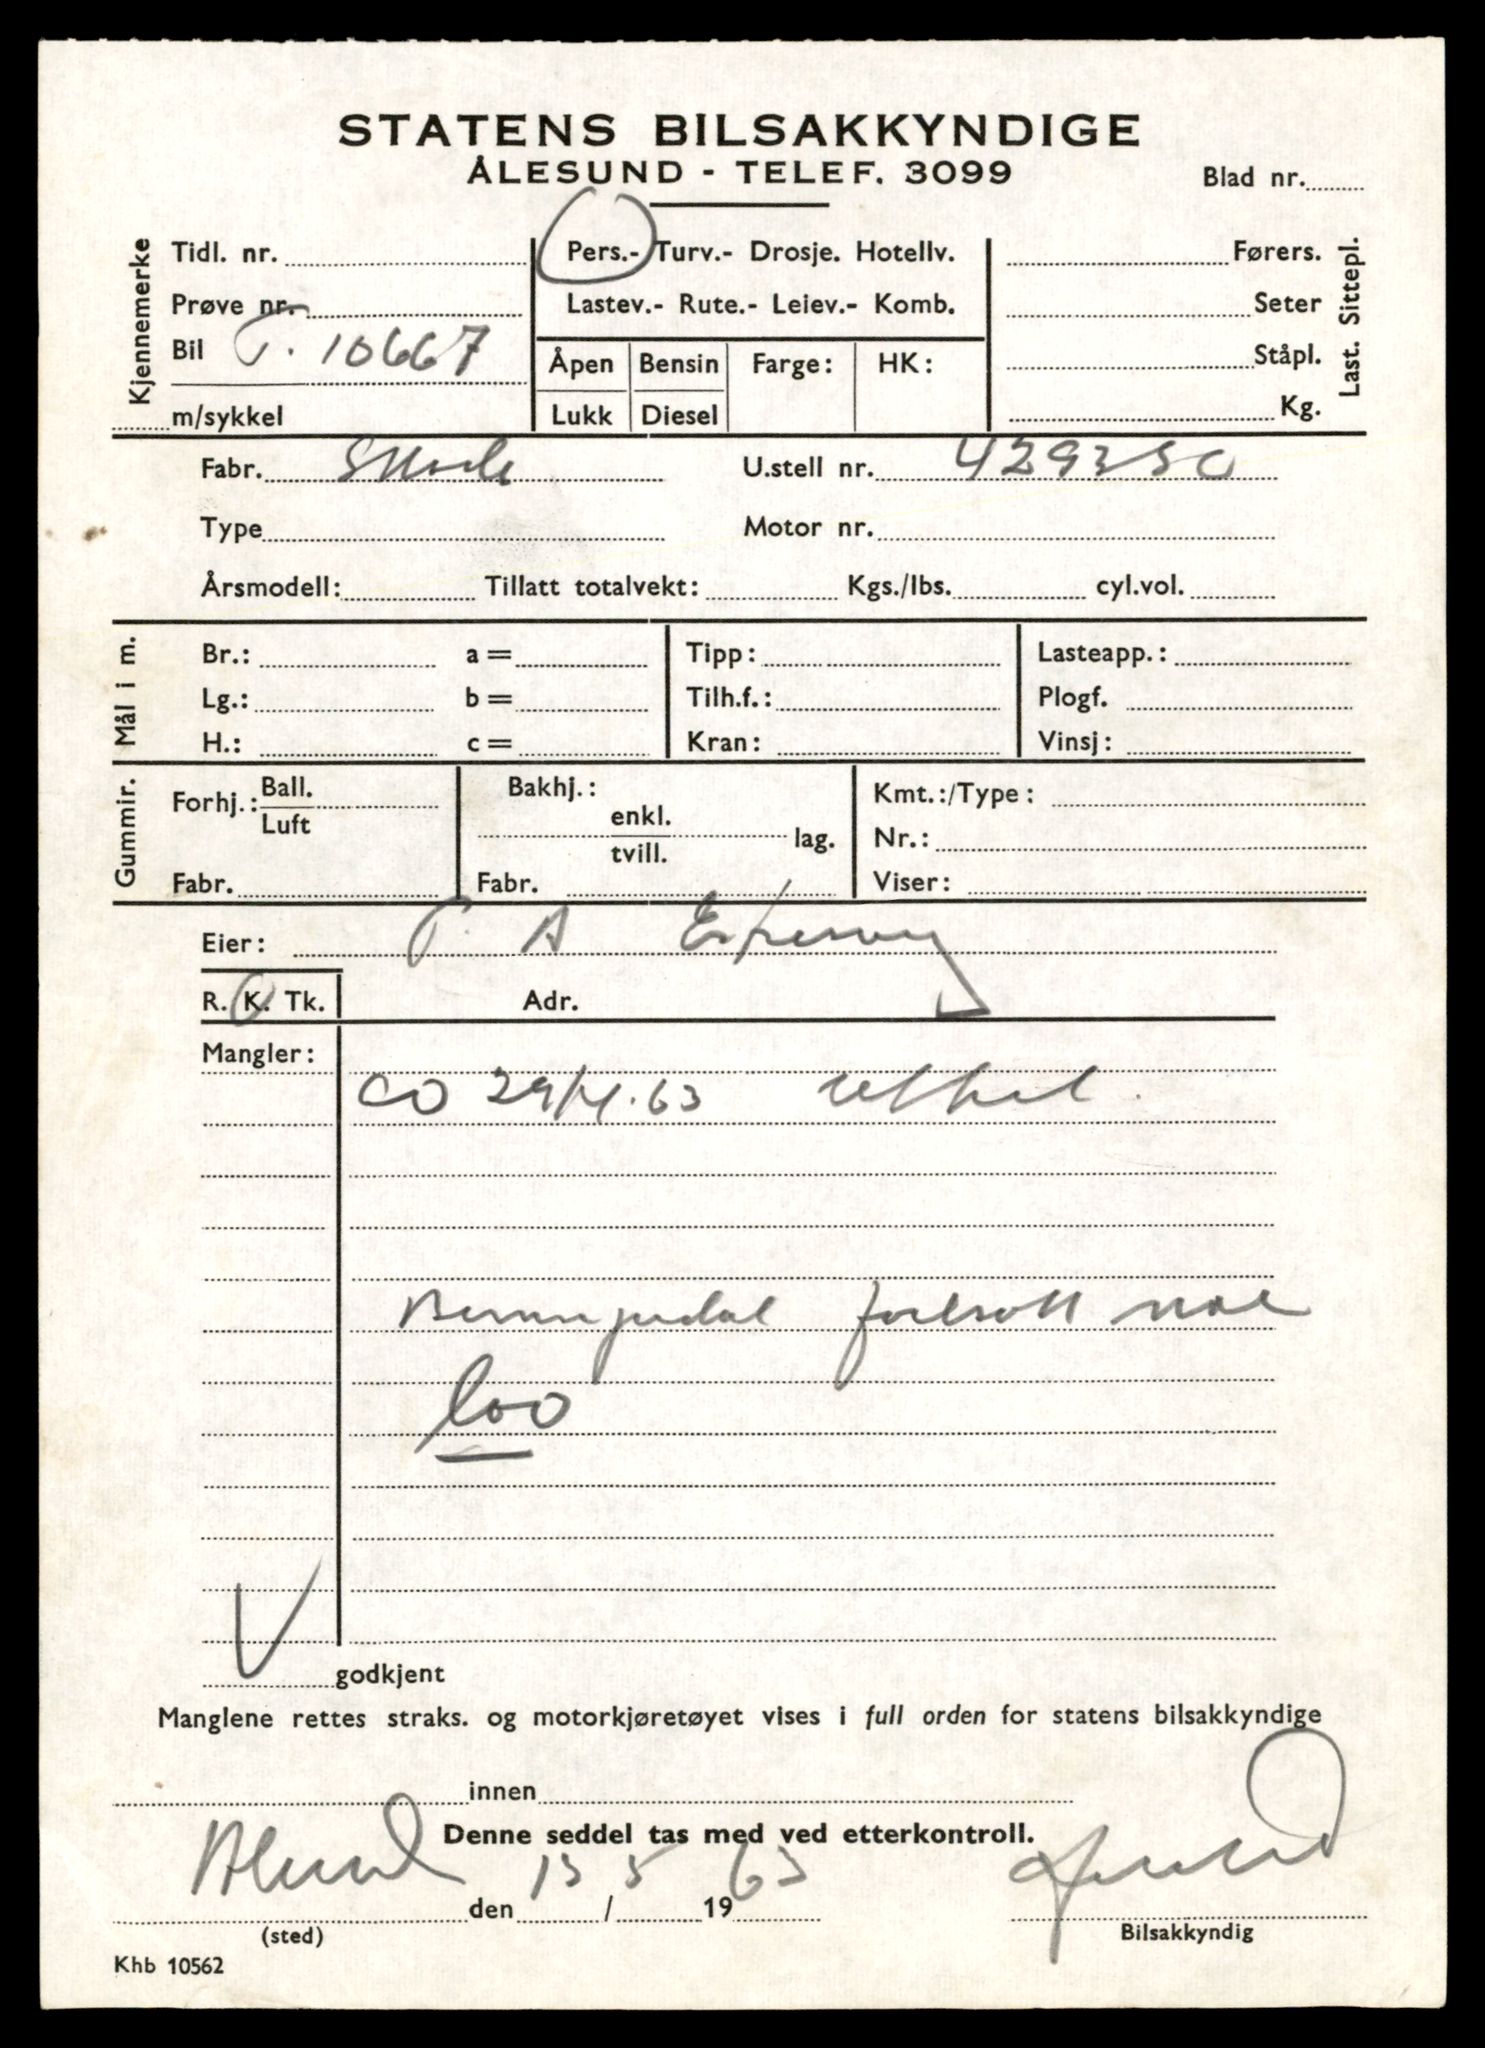 STATENS BILSAKKYNDIGE
ÅLESUND - TELEF. 3099
Blad nr.
Kjennemerke
Tidl. nr.
Prøve nr.
Bil T. 10667
m/sykkel
Pers.- Turv.- Drosje. Hotellv.
Lastev.- Rute.- Leiev.- Komb.
Åpen Bensin Farge: HK:
Lukk Diesel
Førers.
Seter
Ståpl.
Kg.
Last. Sittepl.
Fabr. Skoda U.stell nr. 429350
Type Motor nr.
Årsmodell: Tillatt totalvekt: Kgs./lbs. cyl.vol.
Mål i m.
Br.: a = Tipp: Lasteapp.:
Lg.: b = Tilh.f.: Plogf.
H.: c = Kran: Vinsj:
Gummir.
Forhj.: Ball.
Luft
Fabr.
Bakhj.:
enkl.
tvill. lag.
Fabr.
Kmt.:/Type:
Nr.:
Viser:
Eier: P. A
R. K. Tk. Adr.
Mangler:
CO 29/4.63
Bremsepedal
V godkjent
Manglene rettes straks. og motorkjøretøyet vises i full orden for statens bilsakkyndige
innen
Denne seddel tas med ved etterkontroll.
Ålesund den 13/5 1963
(sted)
Bilsakkyndig
Khb 10562